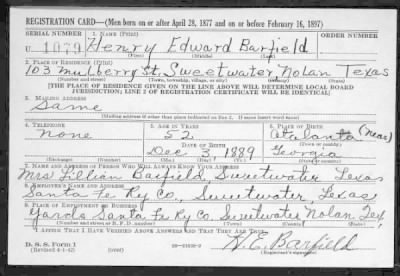 REGISTRATION CARD—(Men born on or after April 28, 1877 and on or before February 16, 1897)
SERIAL NUMBER 1. NAME (Print) ORDER NUMBER
U 1079 Henry Edward Barfield
(First) (Middle) (Last)
2. PLACE OF RESIDENCE (Print)
103 Mulberry St, Sweetwater, Nolan Texas
(Number and street) (Town, township, village, or city) (County) (State)
[THE PLACE OF RESIDENCE GIVEN ON THE LINE ABOVE WILL DETERMINE LOCAL BOARD
JURISDICTION; LINE 2 OF REGISTRATION CERTIFICATE WILL BE IDENTICAL]
3. MAILING ADDRESS
Same
(Mailing address if other than place indicated on line 2. If same insert word same)
4. TELEPHONE 5. AGE IN YEARS 6. PLACE OF BIRTH
None 52 Atalanta (Near)
DATE OF BIRTH (Town or county)
Dec 3, 1889 Georgia
(Exchange) (Number) (Mo.) (Day) (Yr.) (State or country)
7. NAME AND ADDRESS OF PERSON WHO WILL ALWAYS KNOW YOUR ADDRESS
Mrs Lillian Barfield, Sweetwater Texas
8. EMPLOYER'S NAME AND ADDRESS
Santa Fe Ry Co., Sweetwater, Texas
9. PLACE OF EMPLOYMENT OR BUSINESS
Yards Santa Fe Ry Co. Sweetwater Nolan Tex.
(Number and street or R. F. D. number) (Town) (County) (State)
I AFFIRM THAT I HAVE VERIFIED ABOVE ANSWERS AND THAT THEY ARE TRUE.
D. S. S. Form 1
(Revised 4-1-42) (over) H. E. Barfield
(Registrant's signature)